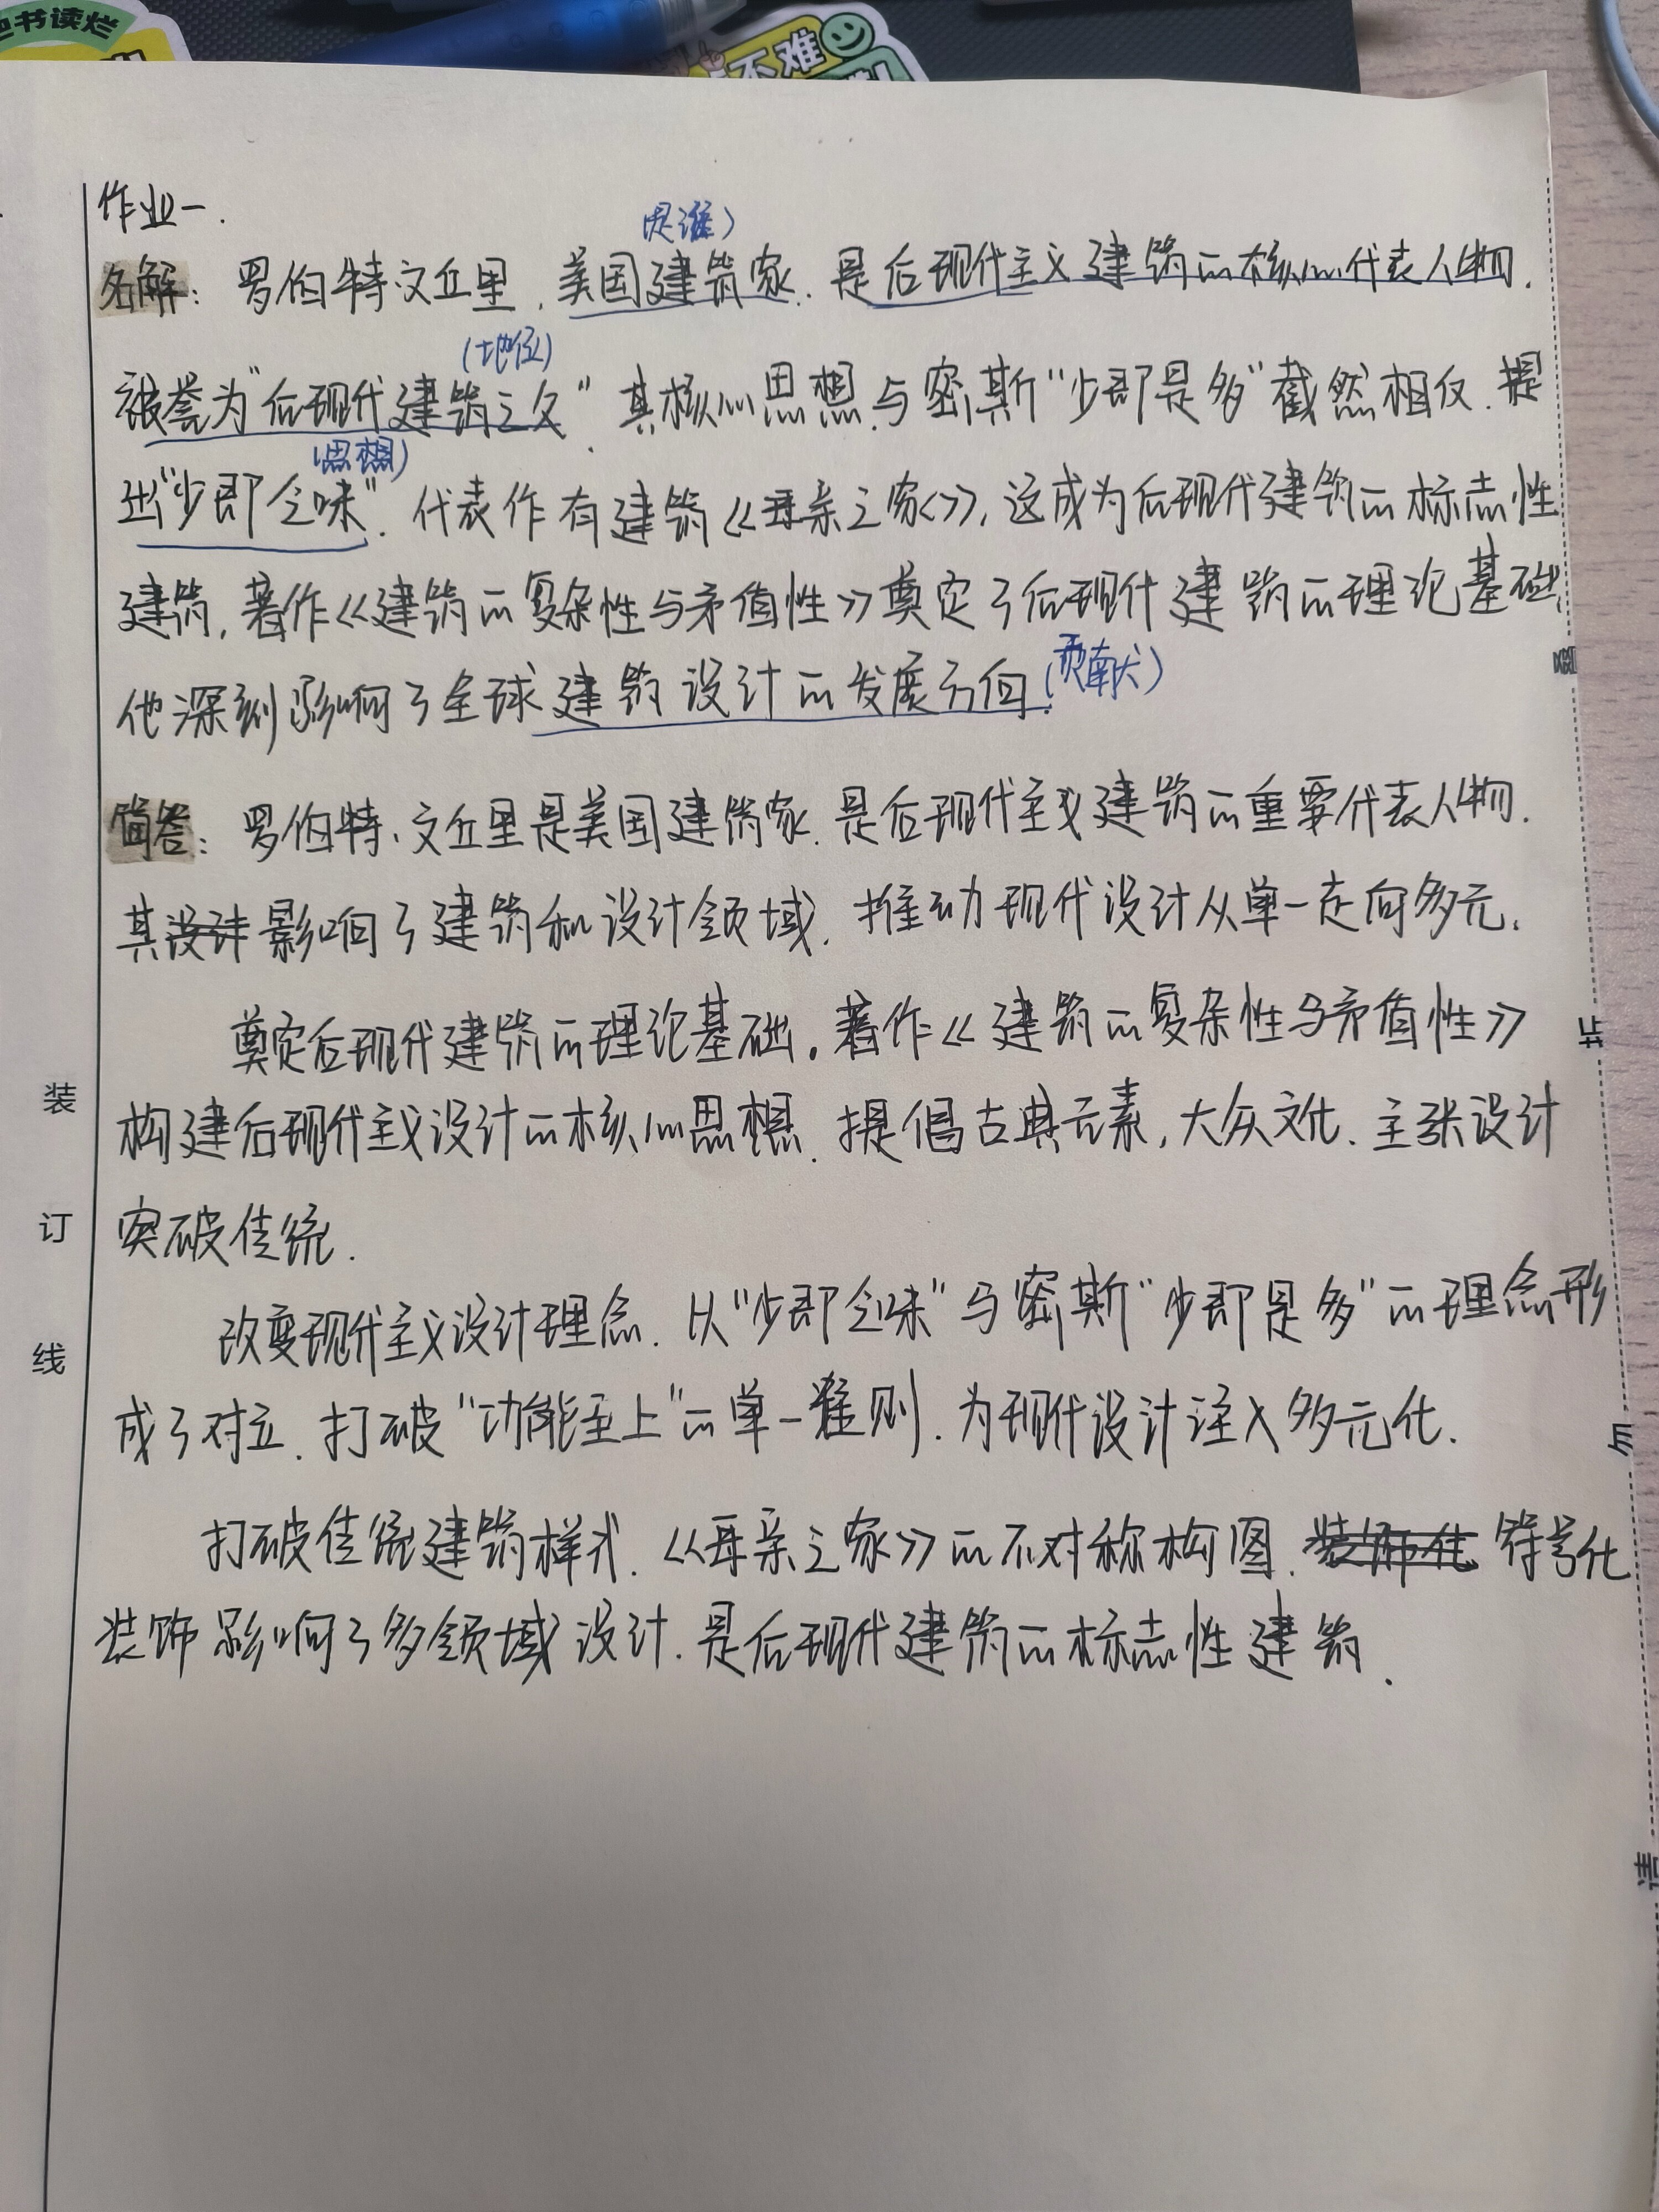 书读烂
不难
作业一.
(是谁)
名解: 罗伯特文丘里,美国建筑家.是后现代主义建筑的核心代表人物.
(地位)
被誉为"后现代建筑之父".其核心思想与密斯"少即是多"截然相反.提
(思想)
出"少即乏味".代表作有建筑《母亲之家》,这成为后现代建筑的标志性
建筑,著作《建筑的复杂性与矛盾性》奠定了后现代建筑的理论基础,
他深刻影响了全球建筑设计的发展方向.(贡献)
简答: 罗伯特·文丘里是美国建筑家.是后现代主义建筑的重要代表人物.
其设计影响了建筑和设计领域.推动现代设计从单一走向多元.
奠定后现代建筑的理论基础.著作《建筑的复杂性与矛盾性》
构建后现代主义设计的核心思想.提倡古典元素,大众文化.主张设计
突破传统.
改变现代主义设计理念.以"少即乏味"与密斯"少即是多"的理念形
成了对立.打破"功能至上"的单一准则.为现代设计注入多元化.
打破传统建筑样式.《母亲之家》的不对称构图.装饰化 符号化
装饰影响了多领域设计.是后现代建筑的标志性建筑.
装
订
线
勿
请